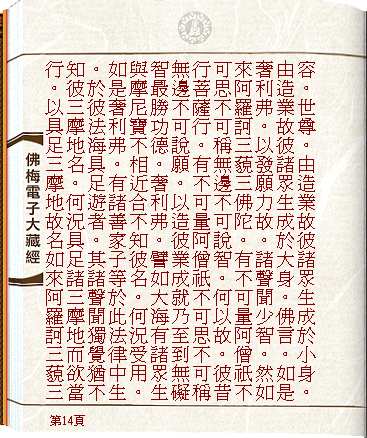 容。世尊。由造業故彼諸眾生成於小身。
由造業故彼諸眾生成於大身。佛言。如是
奢利弗。以發願力故。諸聲聞少智。然如
來阿羅訶三藐三佛陀。有不可量阿僧祇不
可思不可稱無邊不可說智。何以故。彼昔
行菩薩行。有不可量阿僧祇不可思不可稱
無邊不可說願。以造彼業成就乃至到無礙
智最勝功德。奢利弗。譬如大海有諸眾生
與摩尼寶不相近合不知彼名。何況受用。
如是奢利弗。有諸善家子等於此法律中生
知。於彼法海具足遊者。其諸聲聞獨覺猶不
知彼三摩地名。何況具足諸三摩地而欲當
行。以具足三摩地故名如來阿羅訶三藐三
佛梅電子大藏經
第14頁